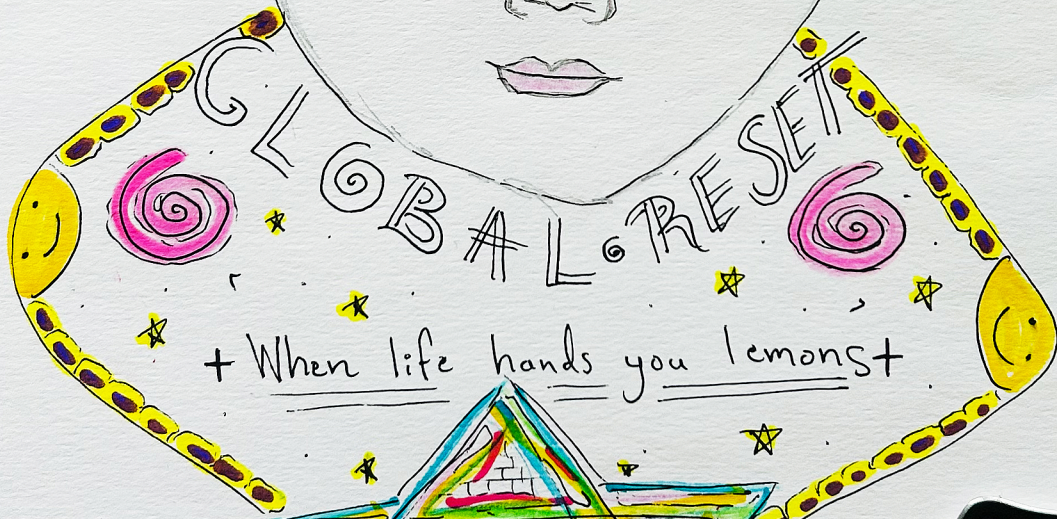 GLOBAL RESET
+ When life hands you lemons +